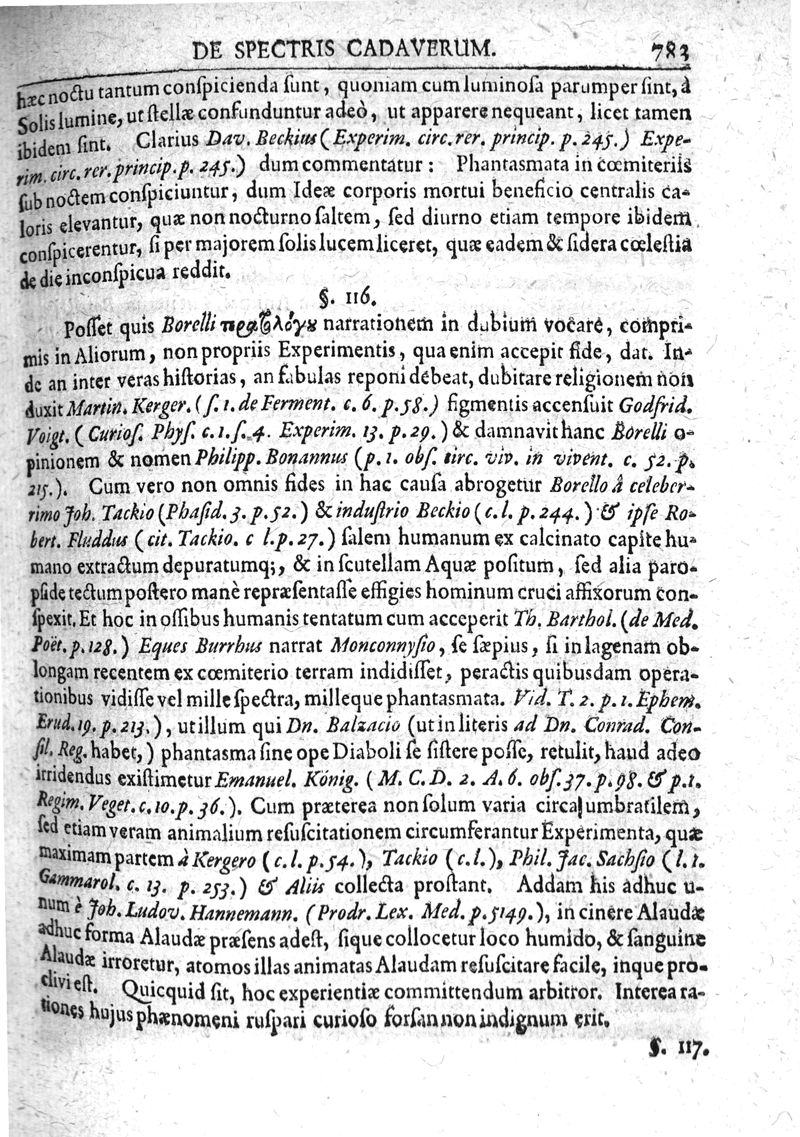 DE SPECTRIS CADAVERUM. 783
hæc noctu tantum conſpicienda ſunt, quoniam cum luminoſa parumper ſint, â
Solis lumine, ut ſtellæ confunduntur adeò, ut apparere nequeant, licet tamen
ibidem ſint. Clarius Dav. Beckius (Experim. circ. rer. princip. p. 245.) Expe-
rim. circ. rer. princip. p. 245.) dum commentatur: Phantasmata in cœmiteriis
ſub noctem conſpiciuntur, dum Ideæ corporis mortui beneficio centralis ca-
loris elevantur, quæ non nocturno ſaltem, ſed diurno etiam tempore ibidem
conſpicerentur, ſi per majorem ſolis lucem liceret, quæ eadem & ſidera cœleſtia
de die inconſpicua reddit.
§. 116.
Poſſet quis Borelli narrationem in dubium vocare, compri-
mis in Aliorum, non propriis Experimentis, qua enim accepit fide, dat. In-
de an inter veras hiſtorias, an fabulas reponi debeat, dubitare religionem non
duxit Martin. Kerger. (ſ. 1. de Ferment. c. 6. p. 58.) figmentis accenſuit Godfrid.
Voigt. (Curioſ. Phyſ. c. 1. ſ. 4. Experim. 13. p. 29.) & damnavit hanc Borelli o-
pinionem & nomen Philipp. Bonannus (p. 1. obſ. circ. viv. in vivent. c. 52. p.
215.). Cum vero non omnis fides in hac cauſa abrogetur Borello â celeber-
rimo Joh. Tackio (Phaſid. 3. p. 52.) & induſtrio Beckio (c. l. p. 244.) & ipſe Ro-
bert. Fluddus (cit. Tackio. c l. p. 27.) ſalem humanum ex calcinato capite hu-
mano extractum depuratumq;, & in ſcutellam Aquæ poſitum, ſed alia paro-
pſide tectum poſtero manè repræſentaſſe effigies hominum cruci affixorum con-
ſpexit. Et hoc in oſſibus humanis tentatum cum acceperit Th. Barthol. (de Med.
Poët. p. 128.) Eques Burrhus narrat Monconnyſio, ſe ſæpius, ſi in lagenam ob-
longam recentem ex cœmiterio terram indidiſſet, peractis quibusdam opera-
tionibus vidiſſe vel mille ſpectra, milleque phantasmata. Vid. T. 2. p. 1. Ephem.
Erud. 19. p. 213.), ut illum qui Dn. Balzacio (ut in literis ad Dn. Conrad. Con-
ſil. Reg. habet,) phantasma ſine ope Diaboli ſe ſiſtere poſſe, retulit, haud adeo
irridendus exiſtimetur Emanuel. König. (M. C. D. 2. A. 6. obſ. 37. p. 98. & p. 1.
Regim. Veget. c. 10. p. 36.). Cum præterea non ſolum varia circa umbratilem,
ſed etiam veram animalium reſuſcitationem circumferantur Experimenta, quæ
maximam partem à Kergero (c. l. p. 54.), Tackio (c. l.), Phil. Jac. Sachſio (l. 1.
Gammarol. c. 13. p. 253.) & Aliis collecta proſtant. Addam his adhuc u-
num è Joh. Ludov. Hannemann. (Prodr. Lex. Med. p. 5149.), in cinere Alaudæ
adhuc forma Alaudæ præſens adeſt, ſique collocetur loco humido, & ſanguine
Alaudæ irroretur, atomos illas animatas Alaudam reſuſcitare facile, inque pro-
clivi eſt. Quicquid ſit, hoc experientiæ committendum arbitror. Interea ra-
tiones hujus phænomeni ruſpari curioſo forſan non indignum erit.
§. 117.